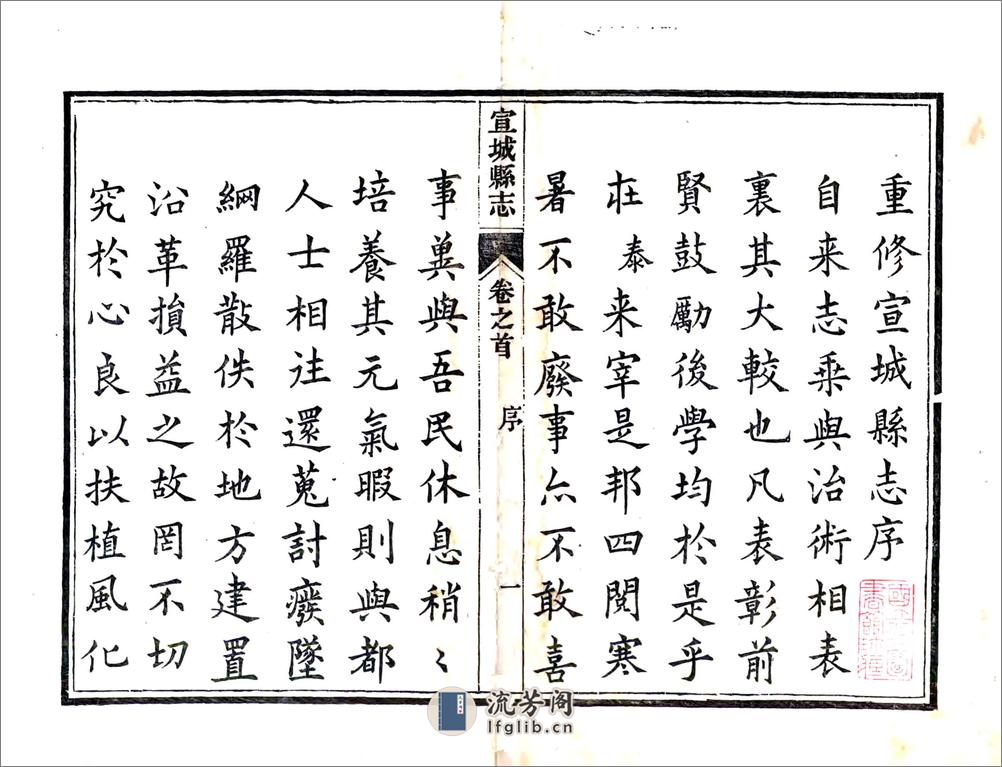 重修宣城縣志序
自来志乘與治術相表
裏其大較也凡表彰前
賢鼓勵後學均於是乎
在泰来宰是邦四閱寒
暑不敢廢事亦不敢喜
宣城縣志
卷之首
序
一
事兾與吾民休息稍〻
培養其元氣暇則與都
人士相往還蒐討癈墜
綱羅散佚於地方建置
沿革損益之故罔不切
究於心良以扶植風化
流芳阁
lfglib.cn